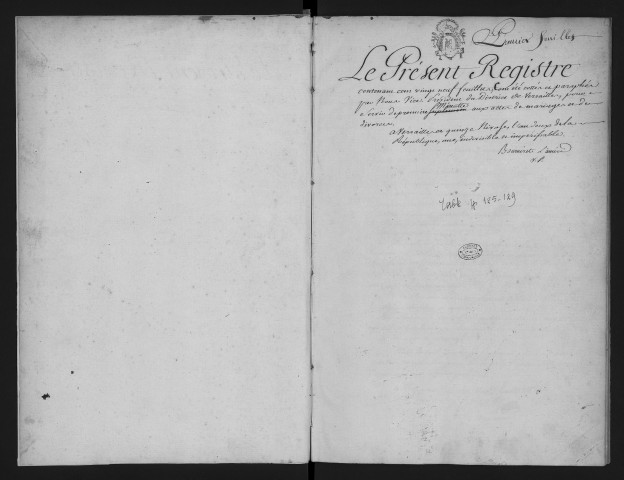 Premier feuillet
Le Présent Registre
contenant cent vingt neuf feuillets, ont été cottés et paraphés
par Nous Vice Président du District de Versailles, pour
servir de premier Minutte aux actes de mariage et de
divorce
a Versailles ce quinze Nivose, l'an deux de la
République, une, indivisible et impérissable.
V.P.
125-129